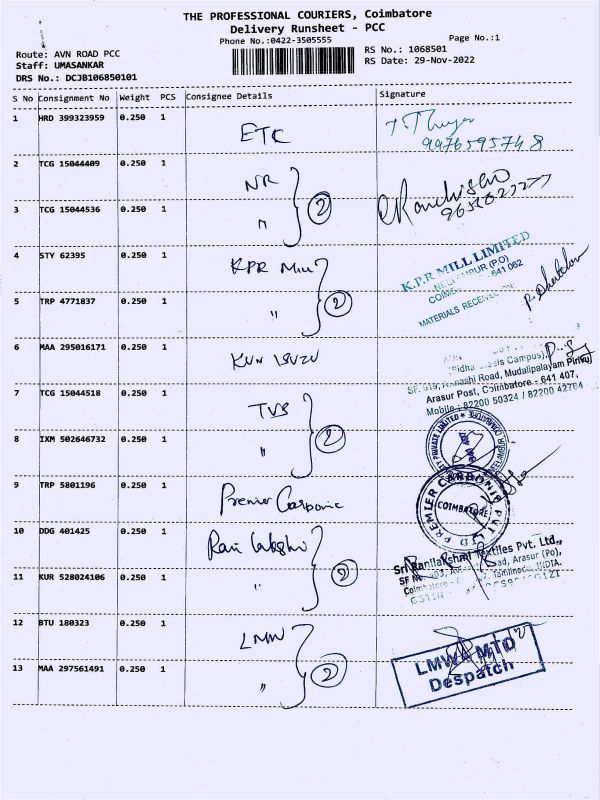 THE PROFESSIONAL COURIERS, Coimbatore
Delivery Runsheet - PCC
Phone No.:0422-3505555
Page No.:1
Route: AVN ROAD PCC
RS No.: 1068501
Staff: UMASANKAR
RS Date: 29-Nov-2022
DRS No.: DCJB106850101
S No Consignment No Weight PCS Consignee Details Signature
1 HRD 399323959 0.250 1 ETK
9976595748
2 TCG 15044409 0.250 1 NR
3 TCG 15044536 0.250 1 "
2
4 STY 62395 0.250 1 KPR Mill
K.P.R MILL LIMITED
641 062
MATERIALS RECEIVED
5 TRP 4771837 0.250 1 "
2
6 MAA 295016171 0.250 1 KUN ISUZU
Campus),
Road, Mudalipalayam Pirivu
Arasur Post, Coimbatore - 641 407,
Mobile : 82200 50324 / 82200 42764
7 TCG 15044518 0.250 1 TVS
8 IXM 502646732 0.250 1 "
2
9 TRP 5801196 0.250 1 Premier Carbonic
PREMIER CARBONIC PVT LTD
COIMBATORE
10 DDG 401425 0.250 1 Rani Lakshmi
Sri Ranilakshmi Textiles Pvt. Ltd.,
Road, Arasur (Po),
Tamilnadu, INDIA.
11 KUR 528024106 0.250 1 "
2
12 BTU 180323 0.250 1 LMW
LMW MTD
Despatch
13 MAA 297561491 0.250 1 "
2